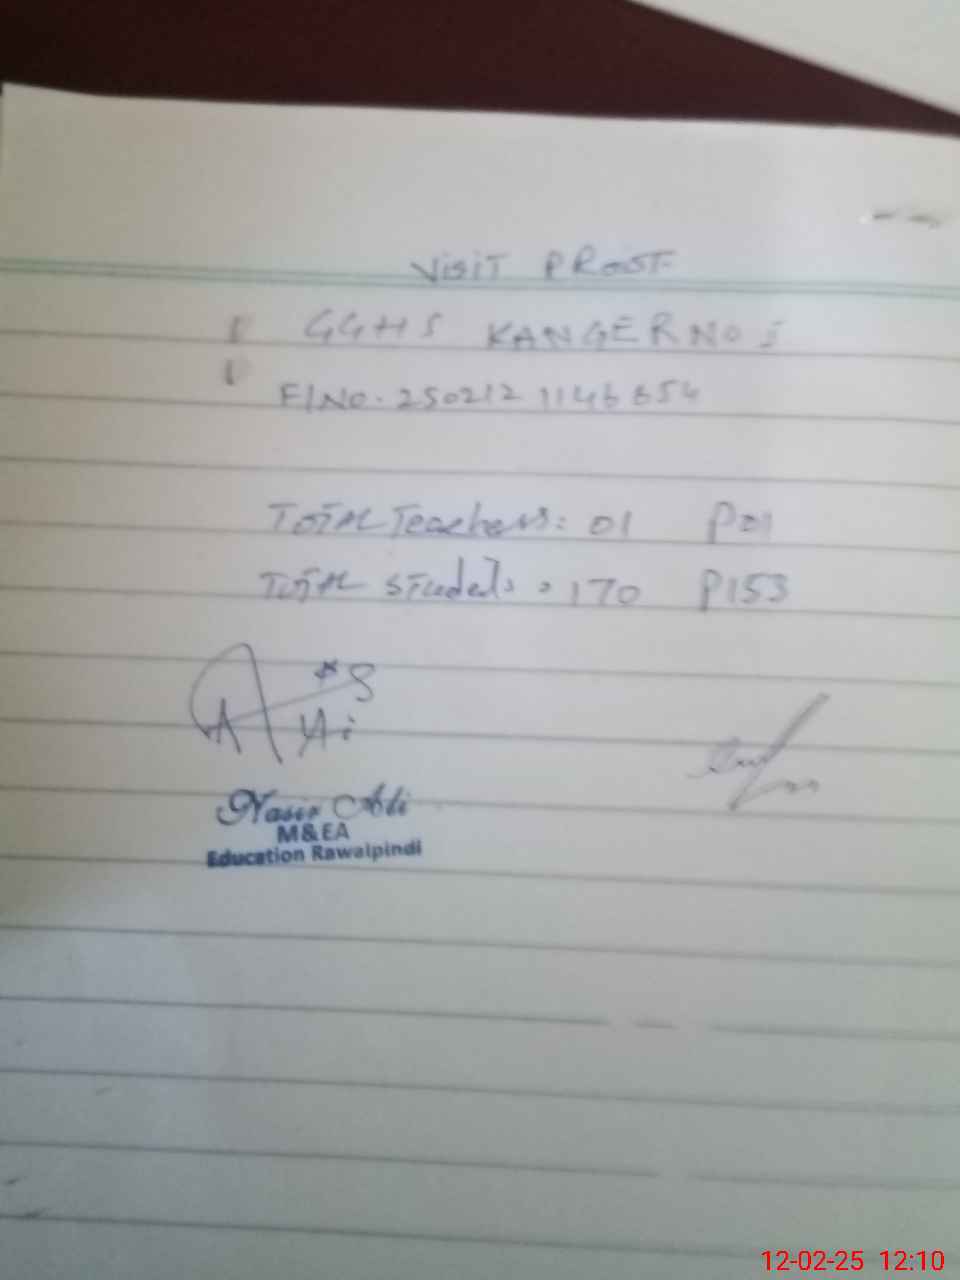 VISIT PROOF
GGHS KANGER NO 1
F/NO. 250212 1146654
TOTAL Teachers: 01 P 01
TOTAL Students: 170 P153
Nasir Ali
M&EA
Education Rawalpindi
12-02-25 12:10